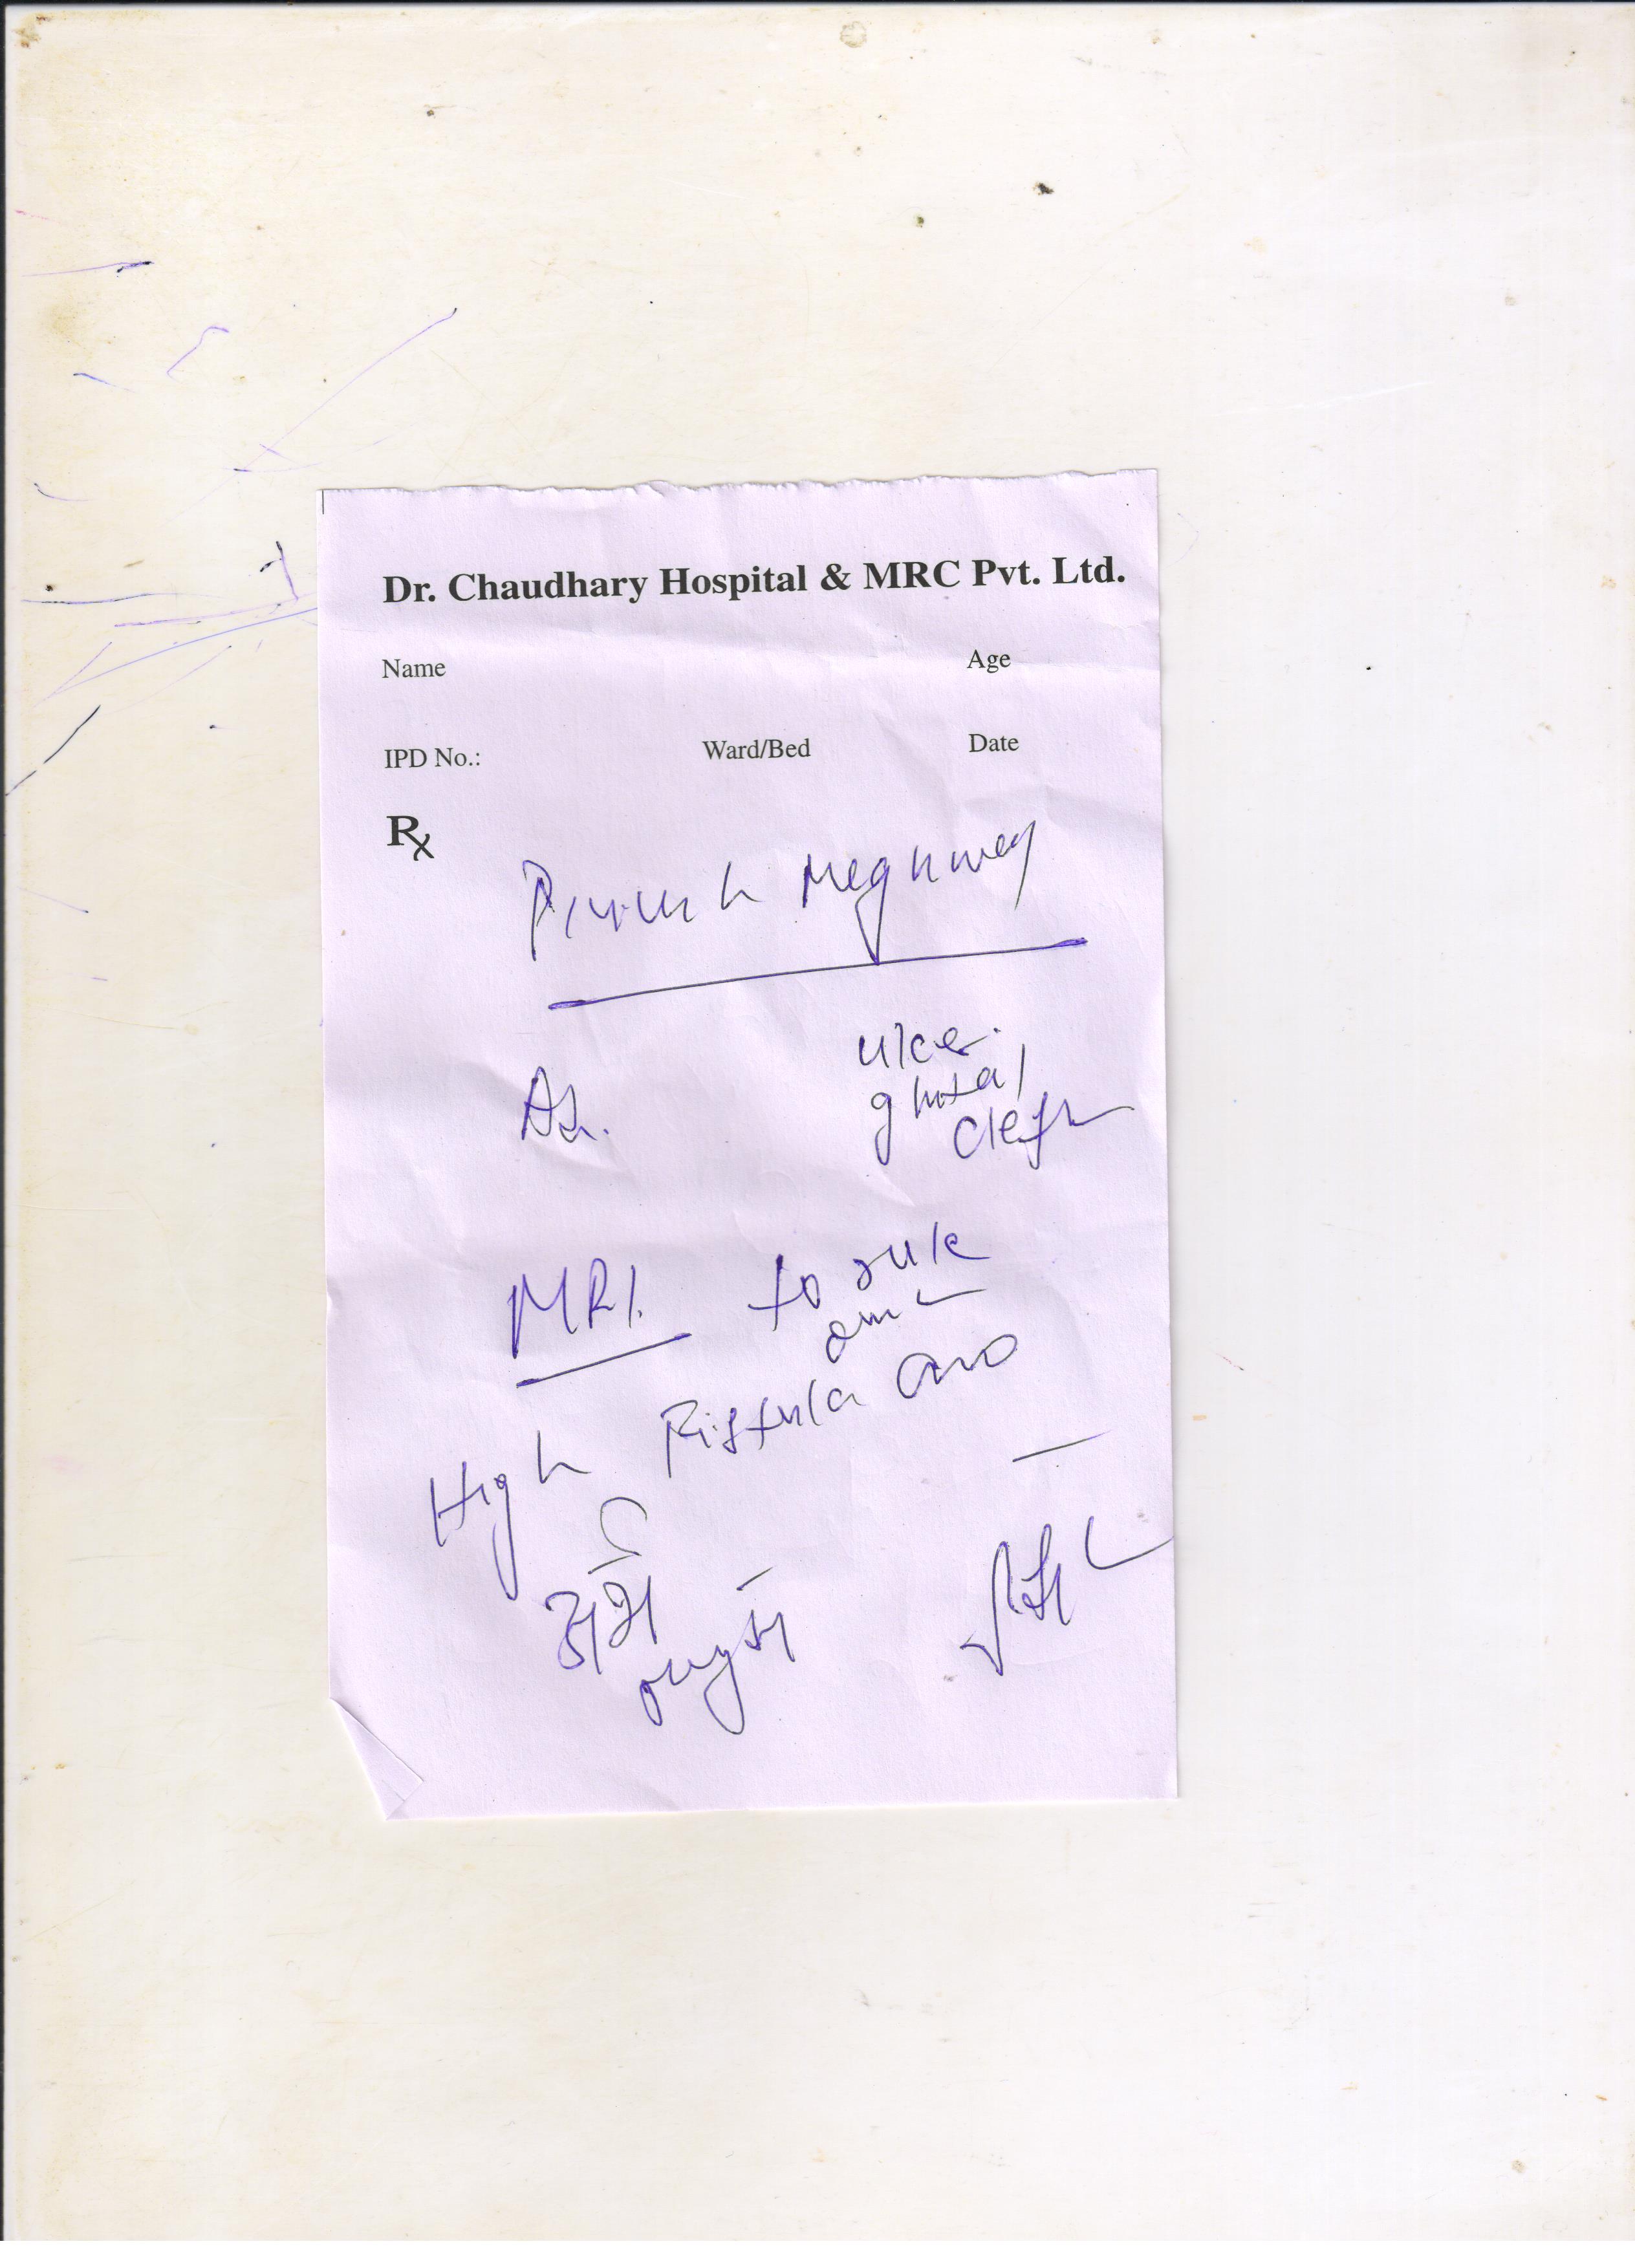 Dr. Chaudhary Hospital & MRC Pvt. Ltd.
Name Age
IPD No.: Ward/Bed Date
Rx
Meghwal
ulcer
glutal
cleft
MRI. to rule
out
High Fistula ano